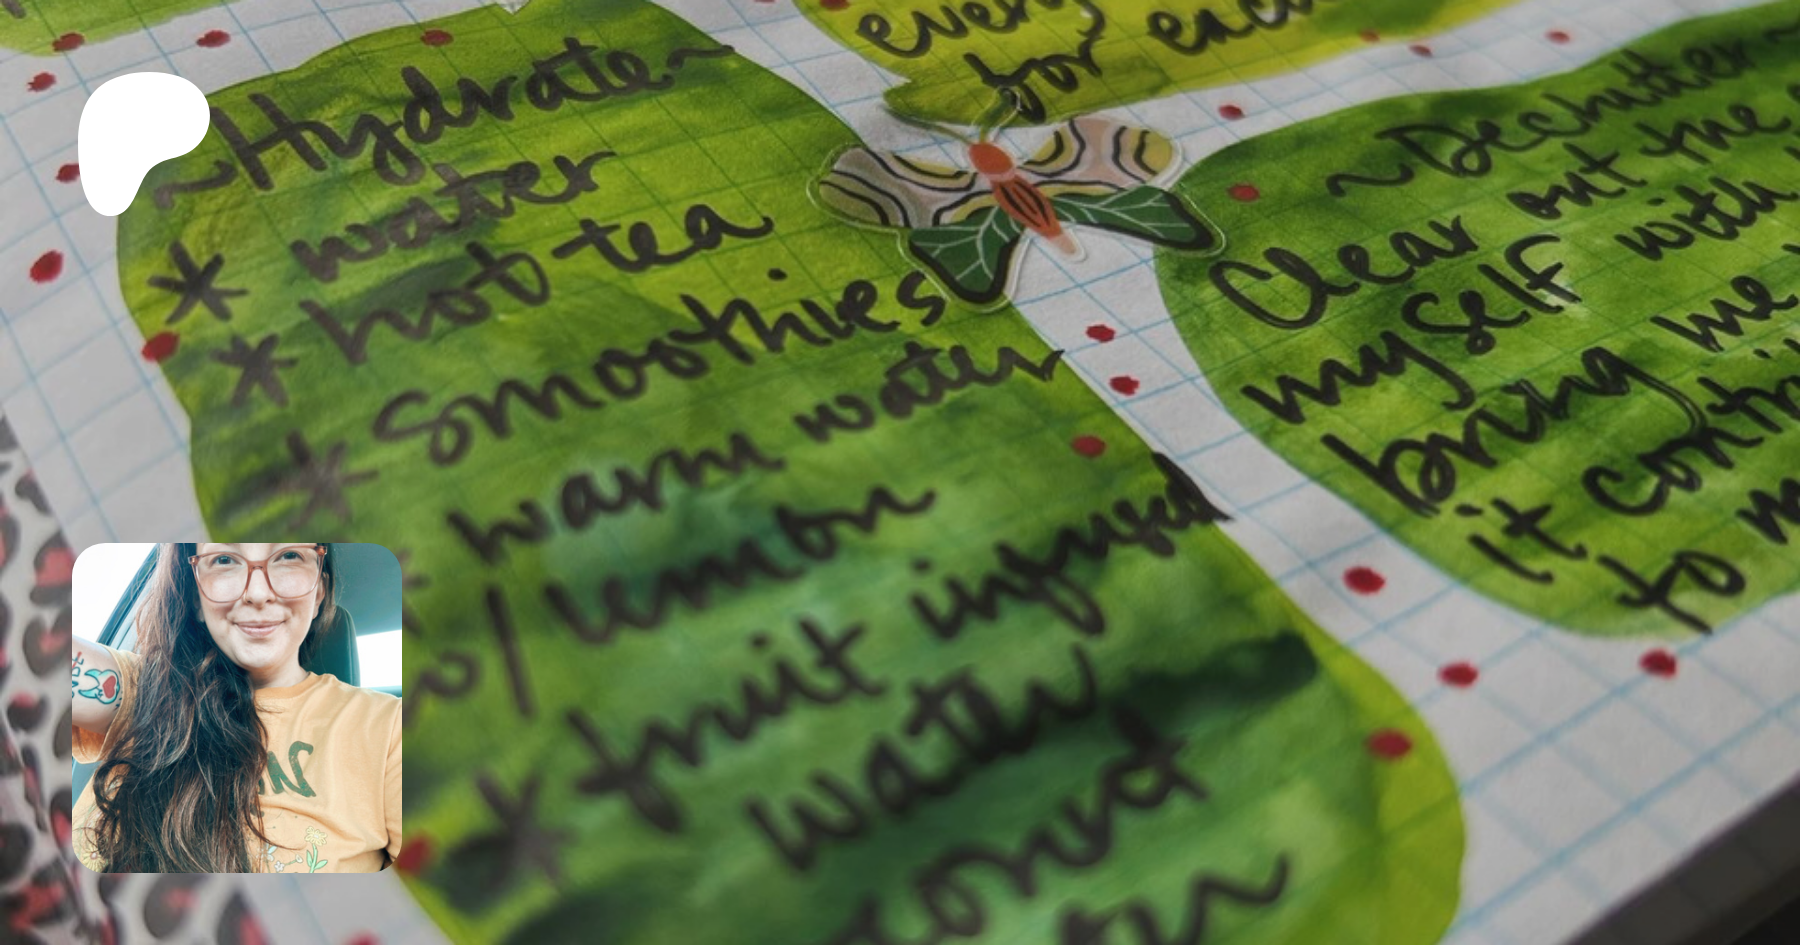 ~Hydrate~
* water
* hot tea
* smoothies
* warm water
w/ lemon
* fruit infused
water
every
for each
~Declutter~
Clear out the
myself with
bring me
it
to